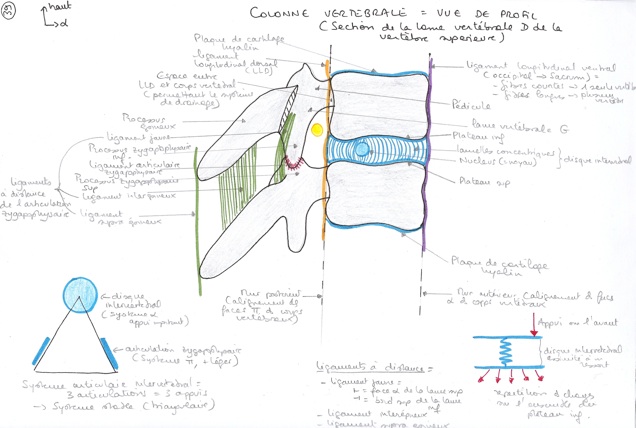 haut
COLONNE VERTEBRALE = VUE DE PROFIL
(Section de la lame vertébrale D de la
vertèbre supérieure)
Plaque de cartilage
hyalin
ligament
longitudinal dorsal
(LLD)
Espace entre
LLD et corps vertébral
(permettant le système
de drainage)
Processus
épineux
Ligament jaune
Processus zygapophysaire
inf
Ligament articulaire
zygapophysaire
Processus zygapophysaire
sup
Ligament interépineux
ligament
supra épineux
Ligaments
à distance
de l'articulation
zygapophysaire
ligament longitudinal ventral
(occipital → Sacrum) =
- fibres courtes → 1 seule vertèbre
- fibres longues → plusieurs
vertèbres
Pédicule
lame vertébrale G
Plateau inf
lamelles concentriques
Nucleus (noyau)
disque intervertébral
Plateau sup
Plaque de cartilage
hyalin
Mur postérieur
(alignement des
faces π des corps
vertébraux)
Mur antérieur (alignement des faces
α des corps vertébraux)
disque
intervertébral
(Système α
appui important)
articulation zygapophysaire
(Système π, + léger)
Système articulaire intervertébral =
3 articulations = 3 appuis
→ Système stable (triangulaire)
Ligaments à distance =
- ligament jaune =
face α de la lame sup
bord sup de la lame
inf
- ligament interépineux
- ligament supra épineux
Appui sur l'avant
disque intervertébral
assimilé à un
ressort
répartition des charges
sur l'ensemble du
plateau inf.